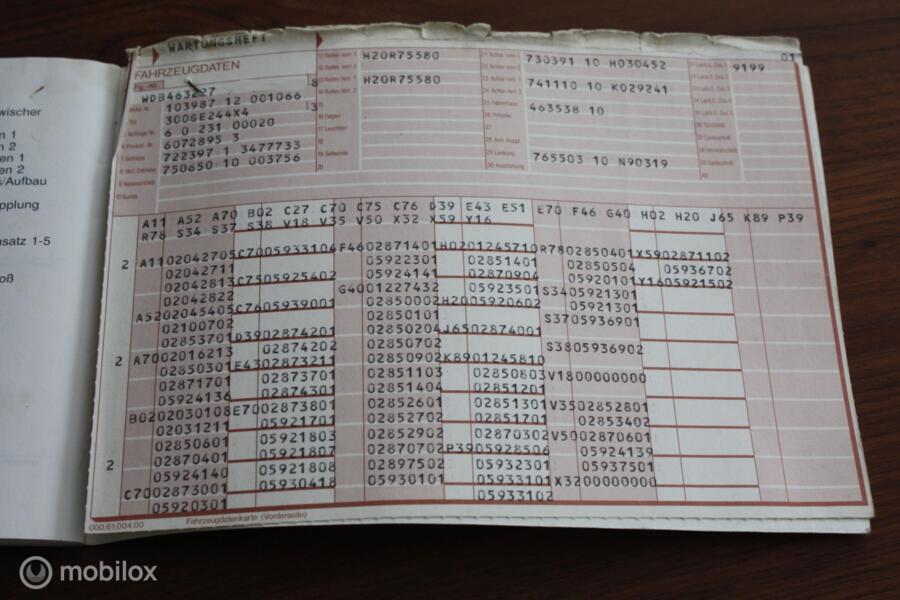 wischer
n 1
n 2
en 1
en 2
s/Aufbau
pplung
nsatz 1-5
oß
WARTUNGSHEFT
01
FAHRZEUGDATEN
Fg.-Nr.
8
WDB463227
3
103987 12 001066
300GE244X4
6 0 231 00020
6072895 3
722397 1 3477733
750650 10 003756
H20R75580
H20R75580
730391 10 H030452
741110 10 K029241
463538 10
765503 10 N90319
9199
16 Felgen
17 Leuchten
27
29 Lenkung
30 Ausstattung
10 Kunde
A11 A52 A70 B02 C27 C70 C75 C76 D39 E43 E51 E70 F46 G40 H02 H20 J65 K89 P39
R78 S34 S37 S38 V18 V35 V50 X32 X59 Y16
2 A1102042705C7005933104F4602871401H0201245710R7802850401X5902871102
02042711 05922301 02851401 02850504 05936702
02042813C7505925402 05924141 02870904 05920101Y1605921502
02042822 G4001227432 05923501S3405921301
A5202045405C7605939001 02850002H2005920602 05921301
02100702 02850101 S3705936901
02853701D3902874201 02850204J6502874001
2 A7002016213 02874202 02850702 S3805936902
02850301E4302873211 02850902K8901245810
02871701 02873701 02851103 02850803V1800000000
05924136 02874301 02851404 02851201
B0202030108E7002873801 02852601 02851301V3502852801
02031211 05921701 02852702 02851701 02853402
02850601 05921803 02852902 02870302V5002870601
02870401 05921807 02870702P3905928506 05924139
2 05924140 05921808 02897502 05932301 05937501
C7002873001 05930418 05930101 05933101X3200000000
05920301 05933102
000.61.004.00 Fahrzeugdatenkarte (Vorderseite)
mobilox